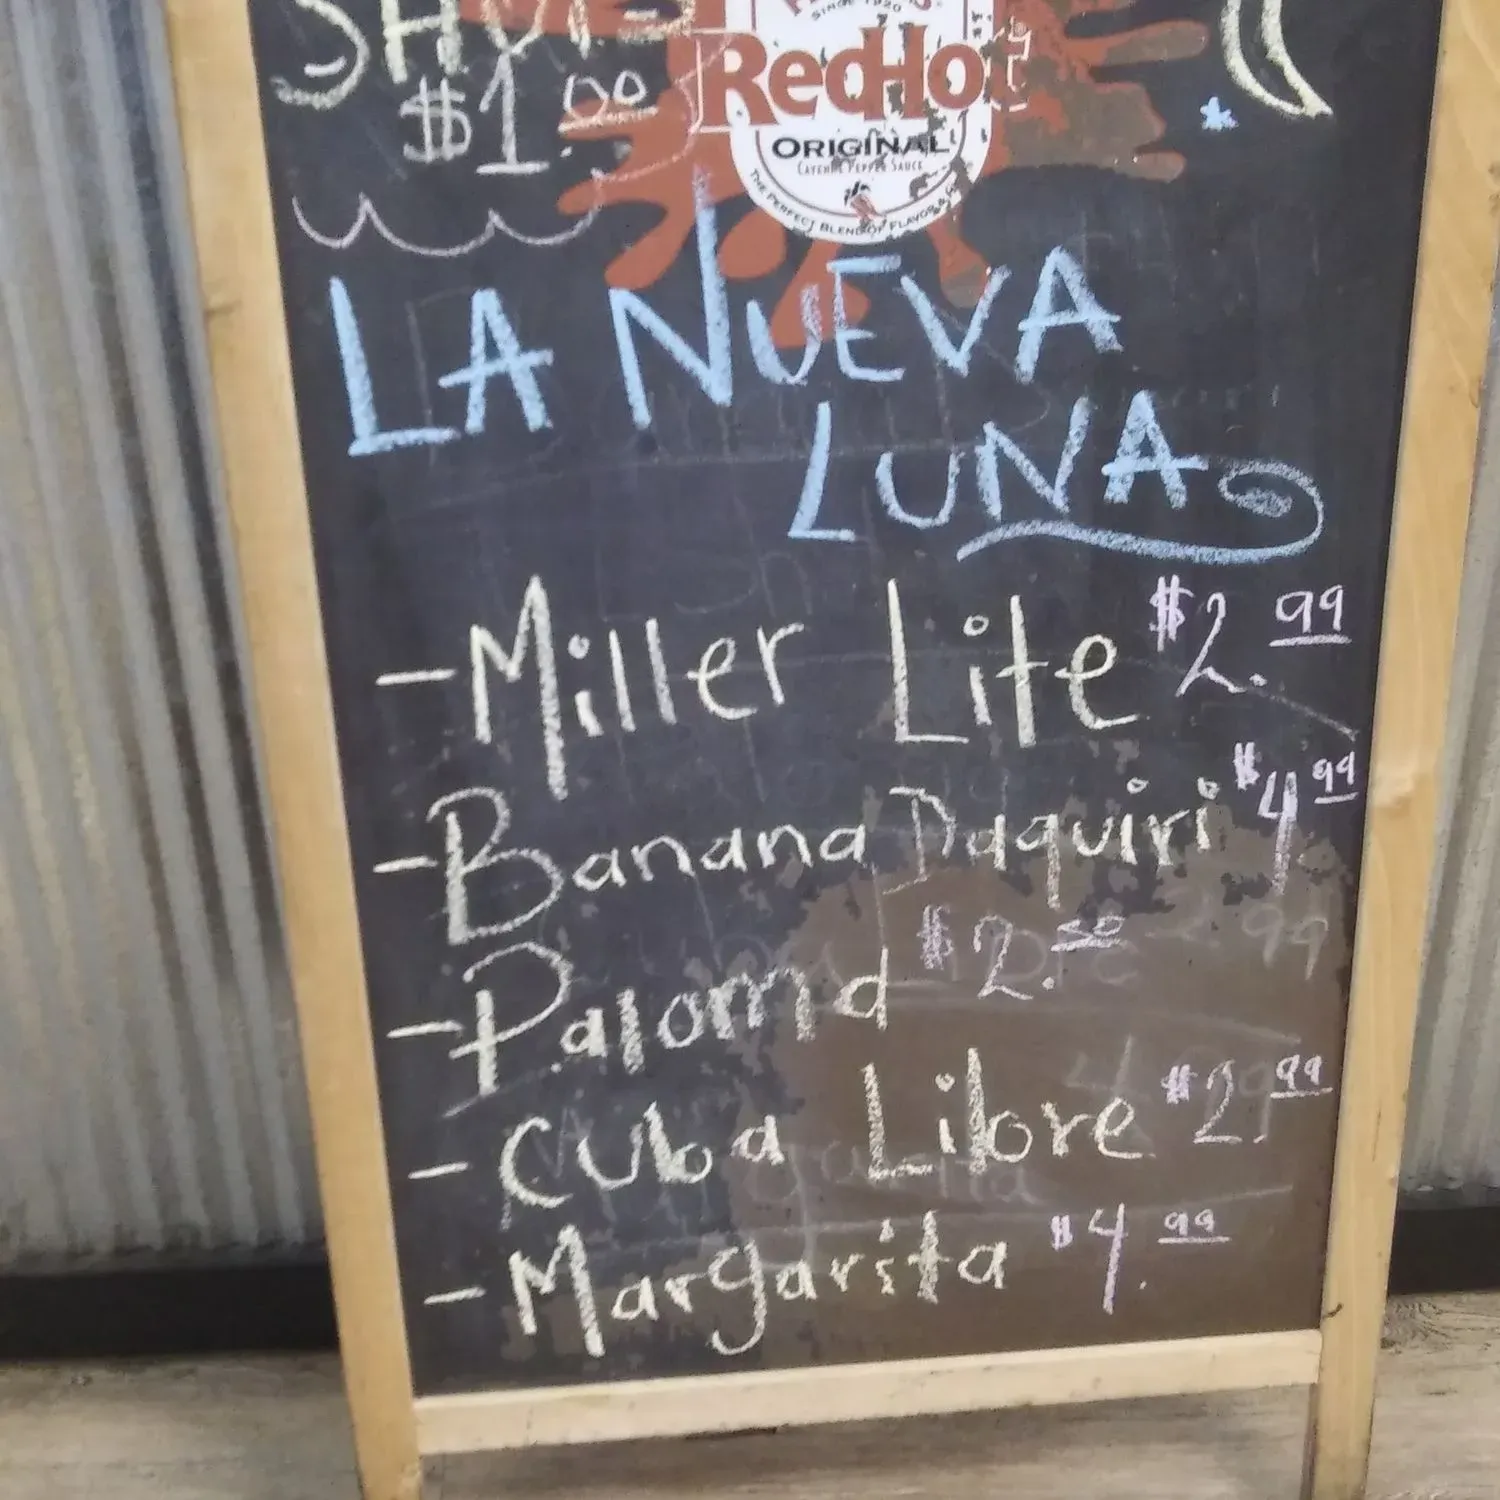 SHOTS
$1.00
SINCE 1920
RedHot
ORIGINAL
CAYENNE PEPPER SAUCE
THE PERFECT BLEND OF FLAVOR &
LA NUEVA
LUNA
- Miller Lite $2.99
- Banana Daquiri $4.99
- Paloma $2.50
- Cuba Libre $2.99
- Margarita $4.99